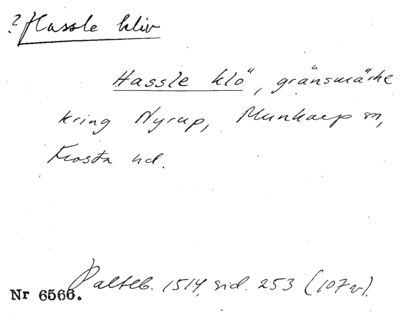 ? Hassle kliv
Hassle klö", gränsmärke
kring Nyrup, Munkarp sn,
Frosta hd.
Palteb. 1514, sid. 253 (107v).
Nr 6566.